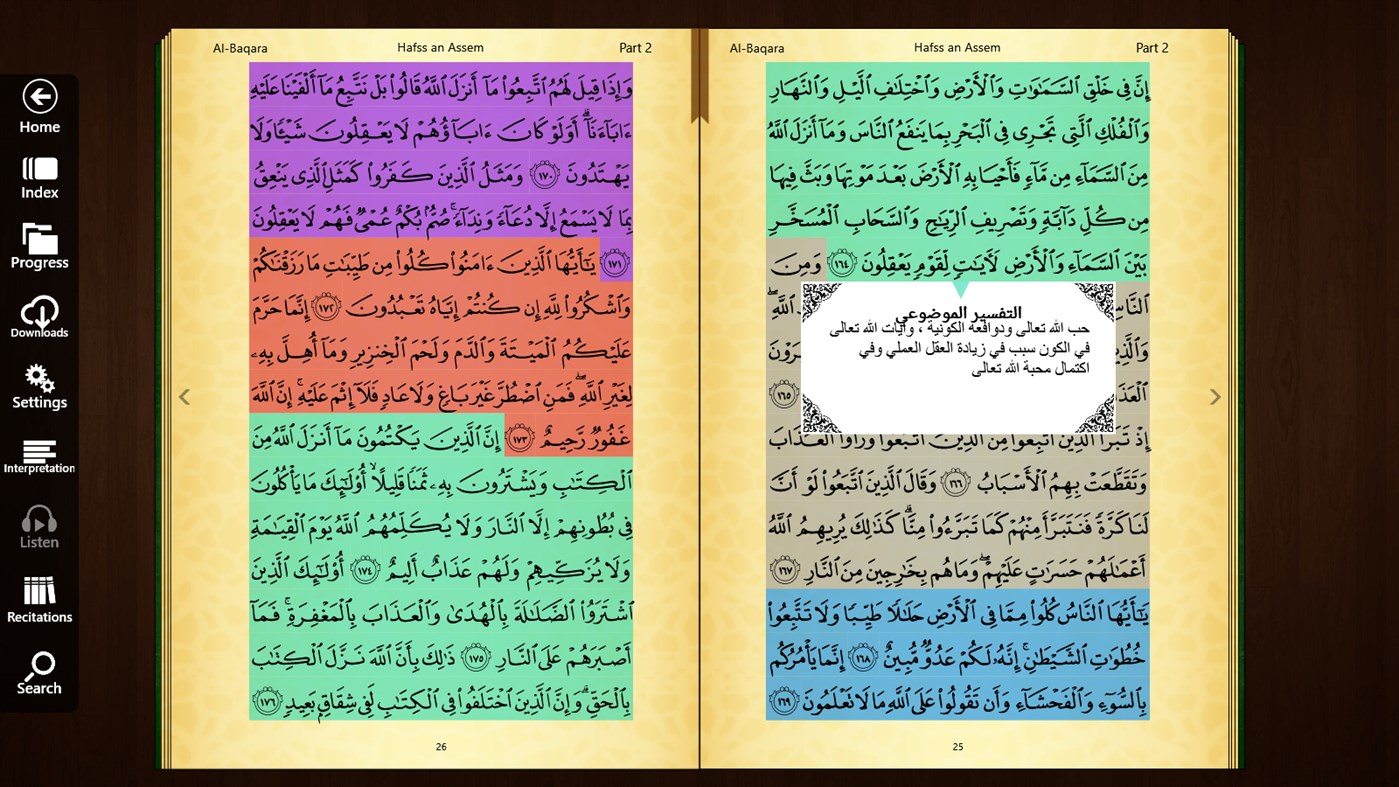 Home
Index
Progress
Downloads
Settings
Interpretation
Listen
Recitations
Search
Al-Baqara Hafss an Assem Part 2
إِنَّ فِي خَلْقِ ٱلسَّمَٰوَٰتِ وَٱلْأَرْضِ وَٱخْتِلَٰفِ ٱلَّيْلِ وَٱلنَّهَارِ
وَٱلْفُلْكِ ٱلَّتِي تَجْرِي فِي ٱلْبَحْرِ بِمَا يَنفَعُ ٱلنَّاسَ وَمَآ أَنزَلَ ٱللَّهُ
مِنَ ٱلسَّمَآءِ مِن مَّآءٍ فَأَحْيَا بِهِ ٱلْأَرْضَ بَعْدَ مَوْتِهَا وَبَثَّ فِيهَا
مِن كُلِّ دَآبَّةٍ وَتَصْرِيفِ ٱلرِّيَٰحِ وَٱلسَّحَابِ ٱلْمُسَخَّرِ
بَيْنَ ٱلسَّمَآءِ وَٱلْأَرْضِ لَءَايَٰتٍ لِّقَوْمٍ يَعْقِلُونَ ١٦٤ وَمِنَ
ٱللَّهِ
التفسير الموضوعي
حب الله تعالى ودوافعه الكونية ، وآيات الله تعالى
في الكون سبب في زيادة العقل العملي وفي
اكتمال محبة الله تعالى
١٦٥
إِذْ تَبَرَّأَ ٱلَّذِينَ ٱتُّبِعُوا۟ مِنَ ٱلَّذِينَ ٱتَّبَعُوا۟ وَرَأَوُا۟ ٱلْعَذَابَ
وَتَقَطَّعَتْ بِهِمُ ٱلْأَسْبَابُ ١٦٦ وَقَالَ ٱلَّذِينَ ٱتَّبَعُوا۟ لَوْ أَنَّ
لَنَا كَرَّةً فَنَتَبَرَّأَ مِنْهُمْ كَمَا تَبَرَّءُوا۟ مِنَّا ۗ كَذَٰلِكَ يُرِيهِمُ ٱللَّهُ
أَعْمَٰلَهُمْ حَسَرَٰتٍ عَلَيْهِمْ ۖ وَمَا هُم بِخَٰرِجِينَ مِنَ ٱلنَّارِ ١٦٧
يَٰٓأَيُّهَا ٱلنَّاسُ كُلُوا۟ مِمَّا فِي ٱلْأَرْضِ حَلَٰلًا طَيِّبًا وَلَا تَتَّبِعُوا۟
خُطُوَٰتِ ٱلشَّيْطَٰنِ ۚ إِنَّهُۥ لَكُمْ عَدُوٌّ مُّبِينٌ ١٦٨ إِنَّمَا يَأْمُرُكُم
بِٱلسُّوٓءِ وَٱلْفَحْشَآءِ وَأَن تَقُولُوا۟ عَلَى ٱللَّهِ مَا لَا تَعْلَمُونَ ١٦٩
25
Al-Baqara Hafss an Assem Part 2
وَإِذَا قِيلَ لَهُمُ ٱتَّبِعُوا۟ مَآ أَنزَلَ ٱللَّهُ قَالُوا۟ بَلْ نَتَّبِعُ مَآ أَلْفَيْنَا عَلَيْهِ
ءَابَآءَنَآ ۗ أَوَلَوْ كَانَ ءَابَآؤُهُمْ لَا يَعْقِلُونَ شَيْـًٔا وَلَا
يَهْتَدُونَ ١٧٠ وَمَثَلُ ٱلَّذِينَ كَفَرُوا۟ كَمَثَلِ ٱلَّذِي يَنْعِقُ
بِمَا لَا يَسْمَعُ إِلَّا دُعَآءً وَنِدَآءً ۚ صُمٌّۢ بُكْمٌ عُمْيٌ فَهُمْ لَا يَعْقِلُونَ
١٧١ يَٰٓأَيُّهَا ٱلَّذِينَ ءَامَنُوا۟ كُلُوا۟ مِن طَيِّبَٰتِ مَا رَزَقْنَٰكُمْ
وَٱشْكُرُوا۟ لِلَّهِ إِن كُنتُمْ إِيَّاهُ تَعْبُدُونَ ١٧٢ إِنَّمَا حَرَّمَ
عَلَيْكُمُ ٱلْمَيْتَةَ وَٱلدَّمَ وَلَحْمَ ٱلْخِنزِيرِ وَمَآ أُهِلَّ بِهِۦ
لِغَيْرِ ٱللَّهِ ۖ فَمَنِ ٱضْطُرَّ غَيْرَ بَاغٍ وَلَا عَادٍ فَلَآ إِثْمَ عَلَيْهِ ۚ إِنَّ ٱللَّهَ
غَفُورٌ رَّحِيمٌ ١٧٣ إِنَّ ٱلَّذِينَ يَكْتُمُونَ مَآ أَنزَلَ ٱللَّهُ مِنَ
ٱلْكِتَٰبِ وَيَشْتَرُونَ بِهِۦ ثَمَنًا قَلِيلًا ۙ أُو۟لَٰٓئِكَ مَا يَأْكُلُونَ
فِي بُطُونِهِمْ إِلَّا ٱلنَّارَ وَلَا يُكَلِّمُهُمُ ٱللَّهُ يَوْمَ ٱلْقِيَٰمَةِ
وَلَا يُزَكِّيهِمْ وَلَهُمْ عَذَابٌ أَلِيمٌ ١٧٤ أُو۟لَٰٓئِكَ ٱلَّذِينَ
ٱشْتَرَوُا۟ ٱلضَّلَٰلَةَ بِٱلْهُدَىٰ وَٱلْعَذَابَ بِٱلْمَغْفِرَةِ ۚ فَمَآ
أَصْبَرَهُمْ عَلَى ٱلنَّارِ ١٧٥ ذَٰلِكَ بِأَنَّ ٱللَّهَ نَزَّلَ ٱلْكِتَٰبَ
بِٱلْحَقِّ ۗ وَإِنَّ ٱلَّذِينَ ٱخْتَلَفُوا۟ فِي ٱلْكِتَٰبِ لَفِي شِقَاقٍۭ بَعِيدٍ ١٧٦
26